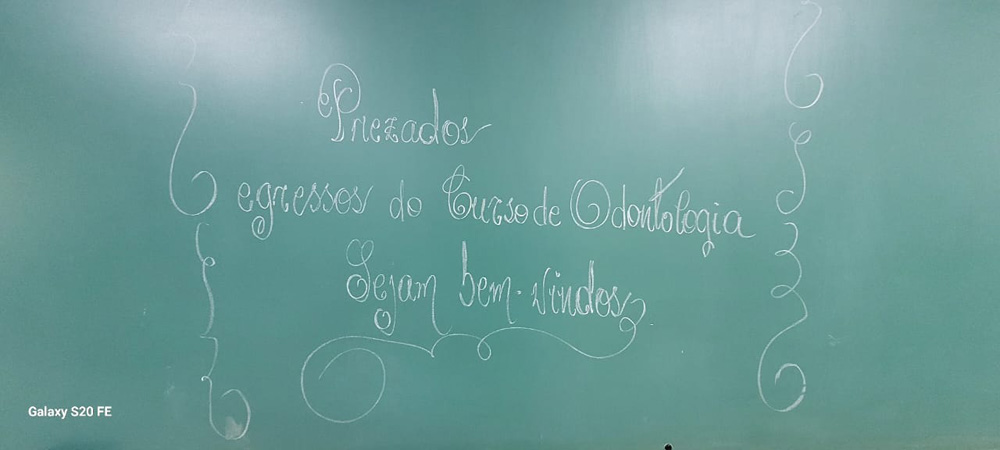 Prezados
egressos do Curso de Odontologia
Sejam bem-vindos
Galaxy S20 FE